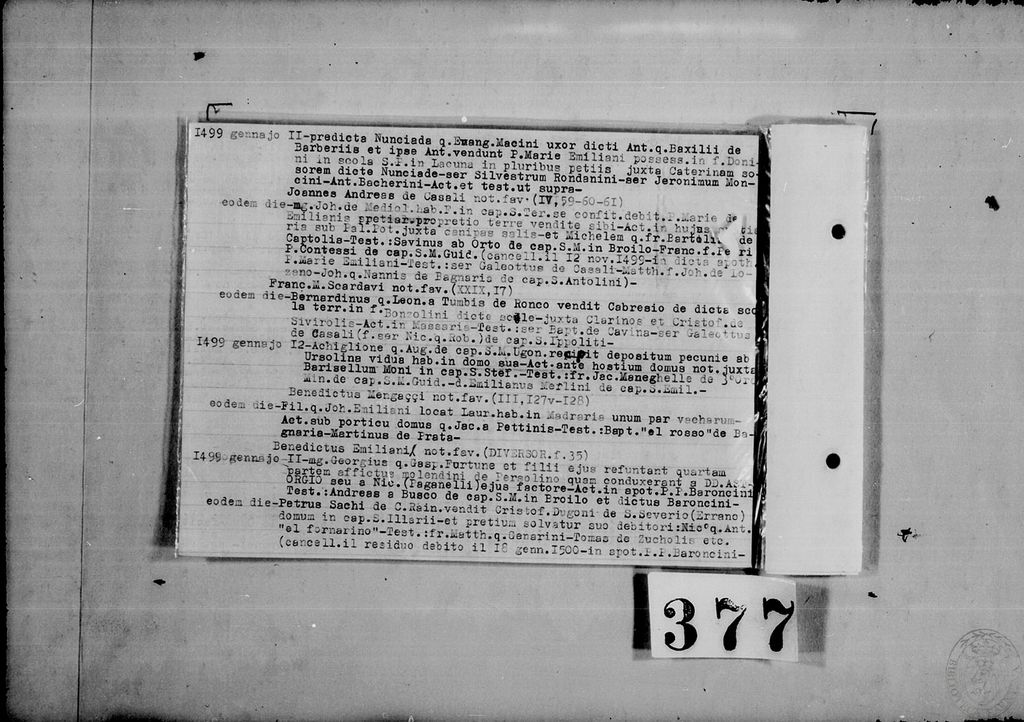 1499 gennajo II-predicta Nunciada q.Evang.Macini uxor dicti Ant.q.Baxilii de
Barberiis et ipse Ant.vendunt P.Marie Emiliani possess.in f.Doni-
ni in scola S.P.in Lacuna in pluribus petiis juxta Caterinam so-
sorem dicte Nunciade-ser Silvestrum Rondanini-ser Jeronimum Mon-
cini-Ant.Bacherini-Act.et test.ut supra-
Joannes Andreas de Casali not.fav.(IV,59-60-6I)
eodem die-mg.Joh.de Mediol.hab.F.in cap.S.Ter.se confit.debit.P.Marie de
Emilianis pretiar.propretio terre vendite sibi-Act.in hujus
ria sub Pal.Pot.juxta canipas salis-et Michelem q.fr.Bartoli de
Captolis-Test.:Savinus ab Orto de cap.S.M.in Broilo-Franc.f.Pe ri
P.Contessi de cap.S.M.Guid.(cancell.il I2 nov.I499-in dicta apoth
P.Marie Emiliani-Test.:ser Galeottus de Casali-Matth.f.Joh.de Lo-
zano-Joh.q.Nannis de Bagnaria de cap.S.Antolini)-
Franc.M.Scardavi not.fav.(XXIX,I7)
eodem die-Bernardinus q.Leon.a Tumbis de Ronco vendit Cabresio de dicta sco
la terr.in f.Bonzolini dicte scole-juxta Clarinos et Cristof.de
Sivirolis-Act.in Massaria-Test.:ser Bapt.de Cavina-ser Galeottus
de Casali(f.ser Nic.q.Rob.)de cap.S.Ippoliti-
I499 gennajo I2-Achiglione q.Aug.de cap.S.M.Ugon.recipit depositum pecunie ab
Ursolina vidua hab.in domo sua-Act.ante hostium domus not.juxta
Barisellum Moni in cap.S.Stef.-Test.:fr.Jac.Maneghelle de 3°ord
Min.de cap.S.M.Guid.-d.Emilianus Merlini de cap.S.Emil.-
Benedictus Mengaççi not.fav.(III,I27v-I28)
eodem die-Fil.q.Joh.Emiliani locat Laur.hab.in Madraria unum par vacharum-
Act.sub porticu domus q.Jac.a Pettinis-Test.:Bapt."el rosso"de Ba-
gnaria-Martinus de Prata-
Benedictus Emiliani not.fav.(DIVERSOR.f.35)
I499 gennajo II-mg.Georgius q.Gasp.Fortune et filii ejus refuntant quartam
partem affictus molendini de Persolino quam conduxerant a DD.
ORGIO seu a Nic.(Paganelli)ejus factore-Act.in apot.P.P.Baroncini
Test.:Andreas a Busco de cap.S.M.in Broilo et dictus Baroncini-
eodem die-Petrus Sachi de C.Rain.vendit Cristof.Dugoni de S.Severio(Errano)
domum in cap.S.Illarii-et pretium solvatur suo debitori:Nic°q.Ant.
"el fornarino"-Test.:fr.Matth.q.Genarini-Tomas de Zucholis etc.
(cancell.il residuo debito il I8 genn.I500-in apot.P.P.Baroncini-
377